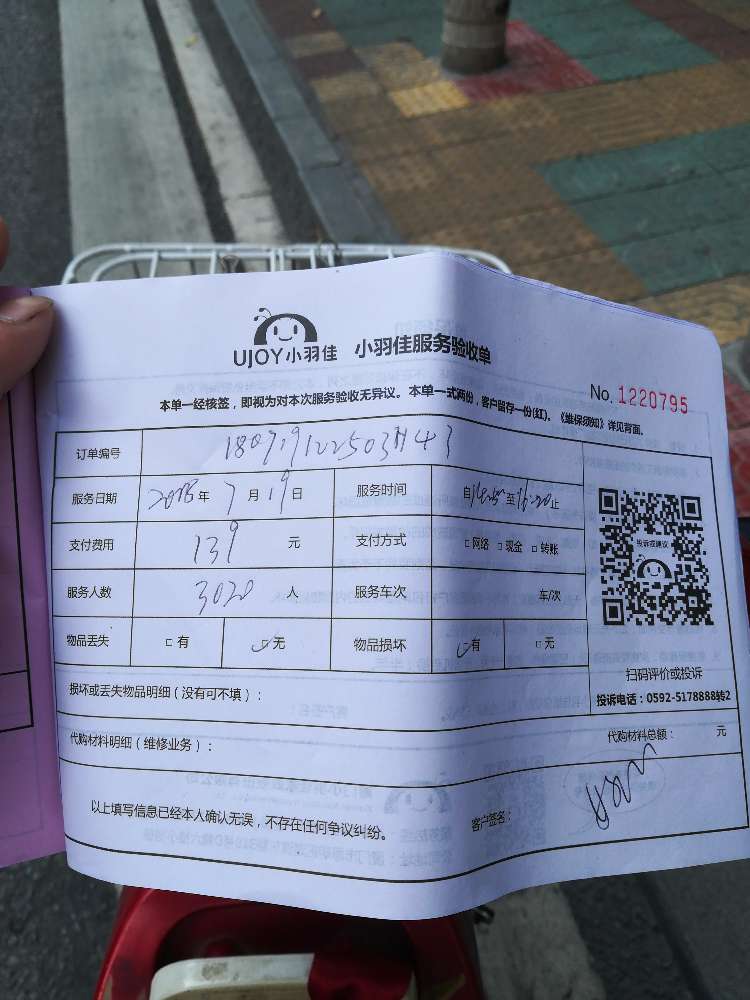 UJOY小羽佳 小羽佳服务验收单
No. 1220795
本单一经核签，即视为对本次服务验收无异议。本单一式两份，客户留存一份(红)。《维保须知》详见背面。
订单编号
服务日期 2018年 7月19日 服务时间 自14:25至16:20止
支付费用 139 元 支付方式 □网络 □现金 □转账
服务人数 3020 人 服务车次 车/次
物品丢失 □有 □无 物品损坏 □有 □无
投诉或建议
扫码评价或投诉
投诉电话：0592-5178888转2
损坏或丢失物品明细（没有可不填）：
代购材料明细（维修业务）： 代购材料总额： 元
以上填写信息已经本人确认无误，不存在任何争议纠纷。 客户签名：